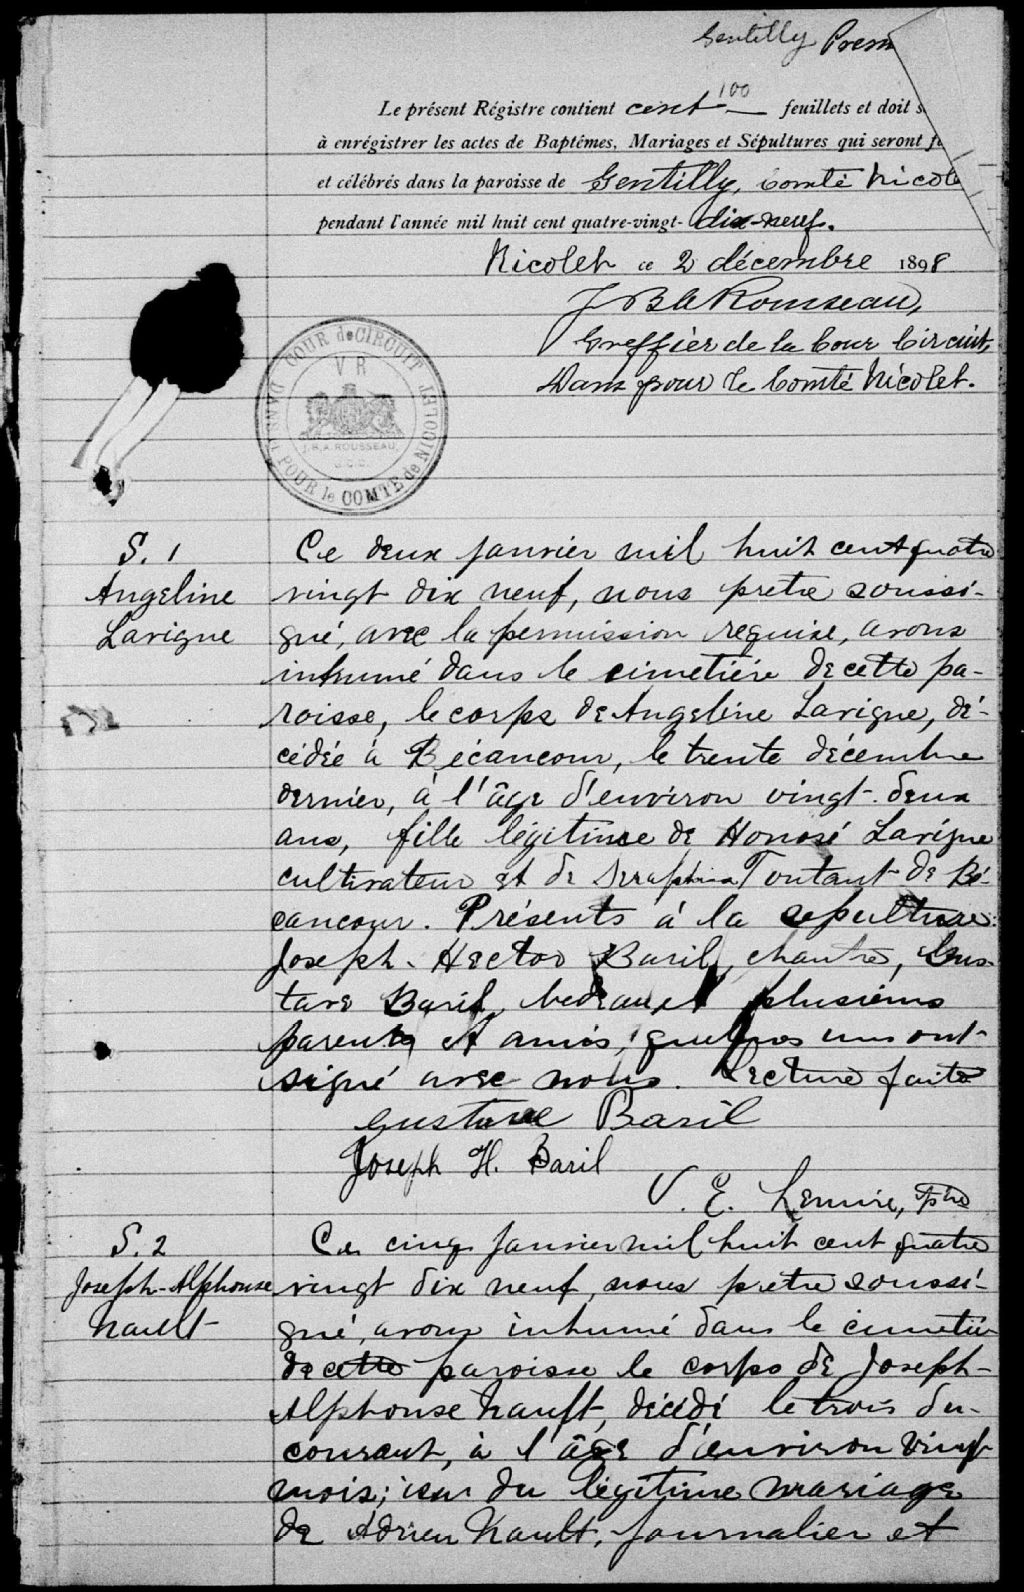 Gentilly Prem
Le présent Régistre contient cent 100 feuillets et doit s
à enrégistrer les actes de Baptêmes, Mariages et Sépultures qui seront f
et célébrés dans la paroisse de Gentilly, Comté Nicol
pendant l'année mil huit cent quatre-vingt-dix-neuf.
Nicolet ce 2 décembre 1898
J B A Rousseau,
Greffier de la Cour Circuit,
Dans pour le Comté Nicolet.
COUR de CIRCUIT DANS & POUR le COMTE de NICOLET
V R
J.B.A. ROUSSEAU
S. 1
Angeline
Lavigne
Ce deux janvier mil huit cent quatre
vingt dix neuf, nous pretre soussi-
gné, avec la permission requise, avons
inhumé dans le cimetière de cette pa-
roisse, le corps de Angeline Lavigne, dé-
cédée à Bécancour, le trente décembre
dernier, à l'âge d'environ vingt-deux
ans, fille légitime de Honoré Lavigne
cultivateur et de Seraphina Toutant de Bé-
cancour. Présents à la sepulture:
Joseph-Hector Baril, chantre, Gus-
tave Baril, bedeau et plusieurs
parents et amis, quelques uns ont
signé avec nous. Lecture faite
Gustave Baril
Joseph H. Baril
V. E. Lemire, Ptre
S. 2
Joseph-Alphonse
Nault
Ce cinq janvier mil huit cent quatre
vingt dix neuf, nous pretre soussi-
gné, avons inhumé dans le cimetiè
de cette paroisse le corps de Joseph-
Alphonse Nault, décédé le trois du
courant, à l'âge d'environ vingt
mois; issu du légitime mariage
de Adrien Nault, journalier et